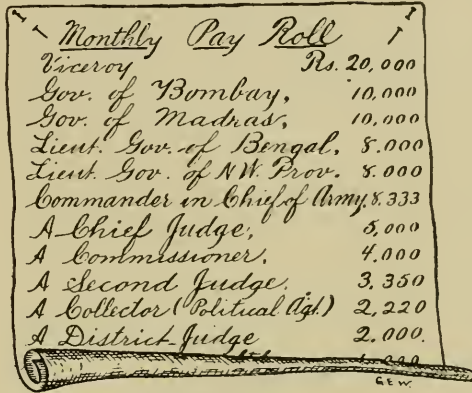 Monthly Pay Roll
Viceroy Rs. 20,000
Gov. of Bombay, 10,000
Gov. of Madras, 10,000
Lieut. Gov. of Bengal, 8.000
Lieut. Gov. of N.W. Prov. 8.000
Commander in Chief of Army. 8.333
A Chief Judge, 5,000
A Commissioner. 4.000
A Second Judge. 3.350
A Collector (Political Agt.) 2,220
A District Judge 2.000.
G.E.W.